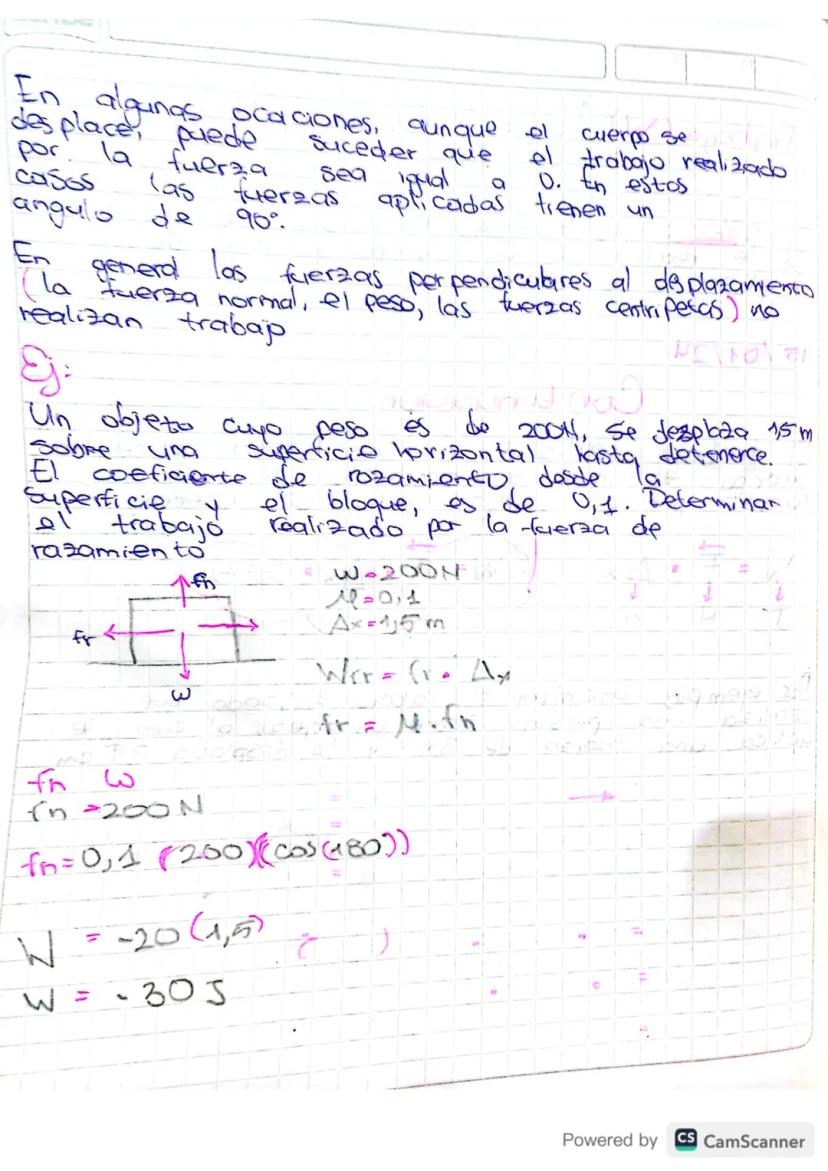 En algunas ocaciones, aunque el cuerpo se
desplace, puede suceder que el trabajo realizado
por la fuerza sea igual a 0. En estos
casos las fuerzas aplicadas tienen un
angulo de 90°.
En general las fuerzas perpendiculares al desplazamiento
(la fuerza normal, el peso, las fuerzas centripetas) no
realizan trabajo
Ej:
Un objeto cuyo peso es de 200N, se desplaza 1,5m
sobre una superficie horizontal hasta detenerce.
El coeficiente de rozamiento, desde la
superficie y el bloque, es de 0,1. Determinar
el trabajo realizado por la fuerza de
razamiento
fn
W=200N
μ=0,1
Δx=1,5m
fr
w
Wfr = fr. Δx
fr = μ.fn
fn W
fn =200N
fn=0,1 (200)(cos(180))
W = -20(1,5)
W = -30J
Powered by CS CamScanner